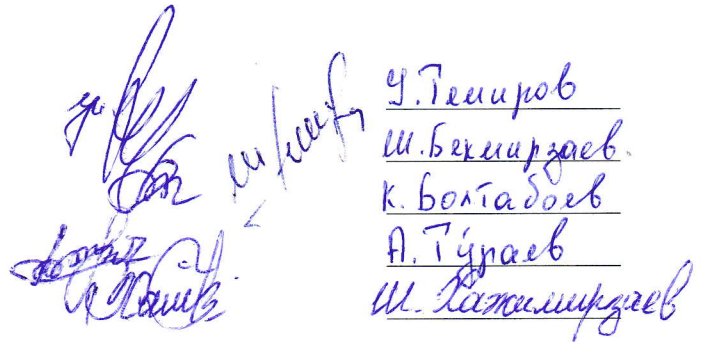 У. Темиров
Ш. Бекмирзаев.
К. Болтабоев
А. Тўраев
Ш. Хажимирзаев